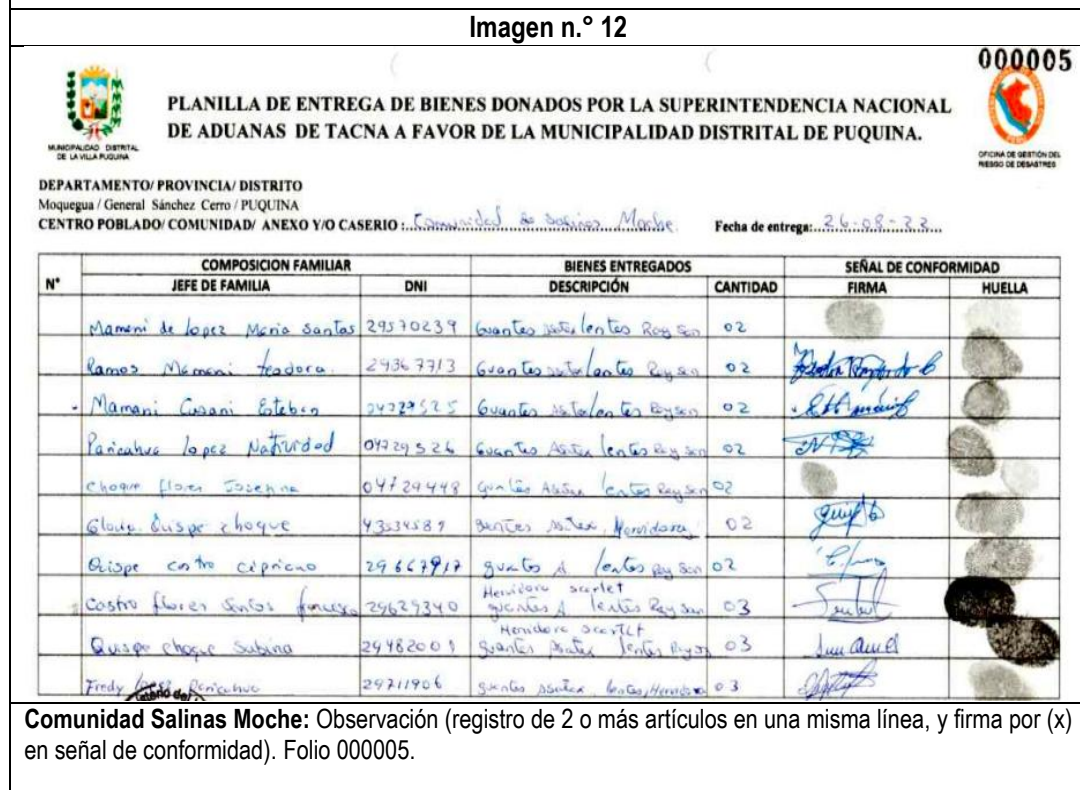 Imagen n.° 12
000005
MUNICIPALIDAD DISTRITAL
DE LA VILLA PUQUINA
PLANILLA DE ENTREGA DE BIENES DONADOS POR LA SUPERINTENDENCIA NACIONAL
DE ADUANAS DE TACNA A FAVOR DE LA MUNICIPALIDAD DISTRITAL DE PUQUINA.
OFICINA DE GESTIÓN DEL
RIESGO DE DESASTRES
DEPARTAMENTO/ PROVINCIA/ DISTRITO
Moquegua / General Sánchez Cerro / PUQUINA
CENTRO POBLADO/ COMUNIDAD/ ANEXO Y/O CASERIO : Comunidad de Salinas Moche Fecha de entrega: 26-08-22
COMPOSICION FAMILIAR BIENES ENTREGADOS SEÑAL DE CONFORMIDAD
N° JEFE DE FAMILIA DNI DESCRIPCIÓN CANTIDAD FIRMA HUELLA
Mamani de Lopez Maria Santos 29570239 Guantes lentes Ray San 02
Ramos Mamani teodora 29367713 Guantes lentes Ray San 02
Mamani Cusani Esteban Guantes lentes Ray San 02
Paricahua Lopez Natividad 04729526 Guantes lentes Ray San 02
choque flores Josefina 04729448 lentes Ray San 02
Quispe choque 43534589 Hervidora 02
Quispe castro cipriano guantes A lentes Ray San 02
Hervidora scarlet
Castro flores Santos 29629340 guantes A lentes Ray San 03
Hervidora scarlet
Quispe choque Sabina guantes lentes 03
Fredy Paricahua 29711906 guantes lentes, Hervidora 03
Comunidad Salinas Moche: Observación (registro de 2 o más artículos en una misma línea, y firma por (x)
en señal de conformidad). Folio 000005.